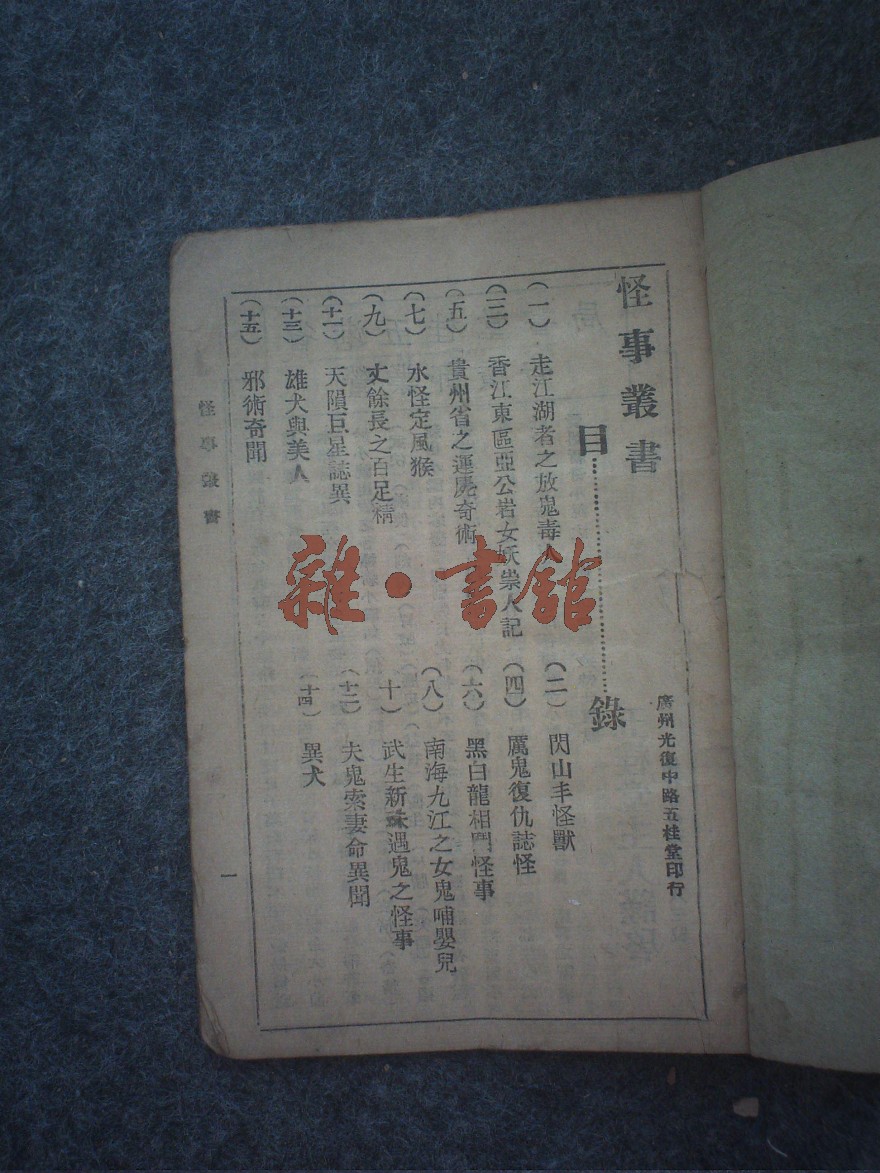 怪事叢書
目……………………錄
廣州光復中路五桂堂印行
(一) 走江湖者之放鬼毒人
(二) 閃山丰怪獸
(三) 香江東區亞公岩女妖祟人記
(四) 厲鬼復仇誌怪
(五) 貴州省之運屍奇術
(六) 黑白龍相鬥怪事
(七) 水怪定風猴
(八) 南海九江之女鬼哺嬰兒
(九) 丈餘長之百足精
十) 武生新蘇遇鬼之怪事
(十一) 天隕巨星誌異
(十二) 夫鬼索妻命異聞
(十三) 雄犬與美人
(十四) 異犬
(十五) 邪術奇聞
怪事叢書
一
雜·書館